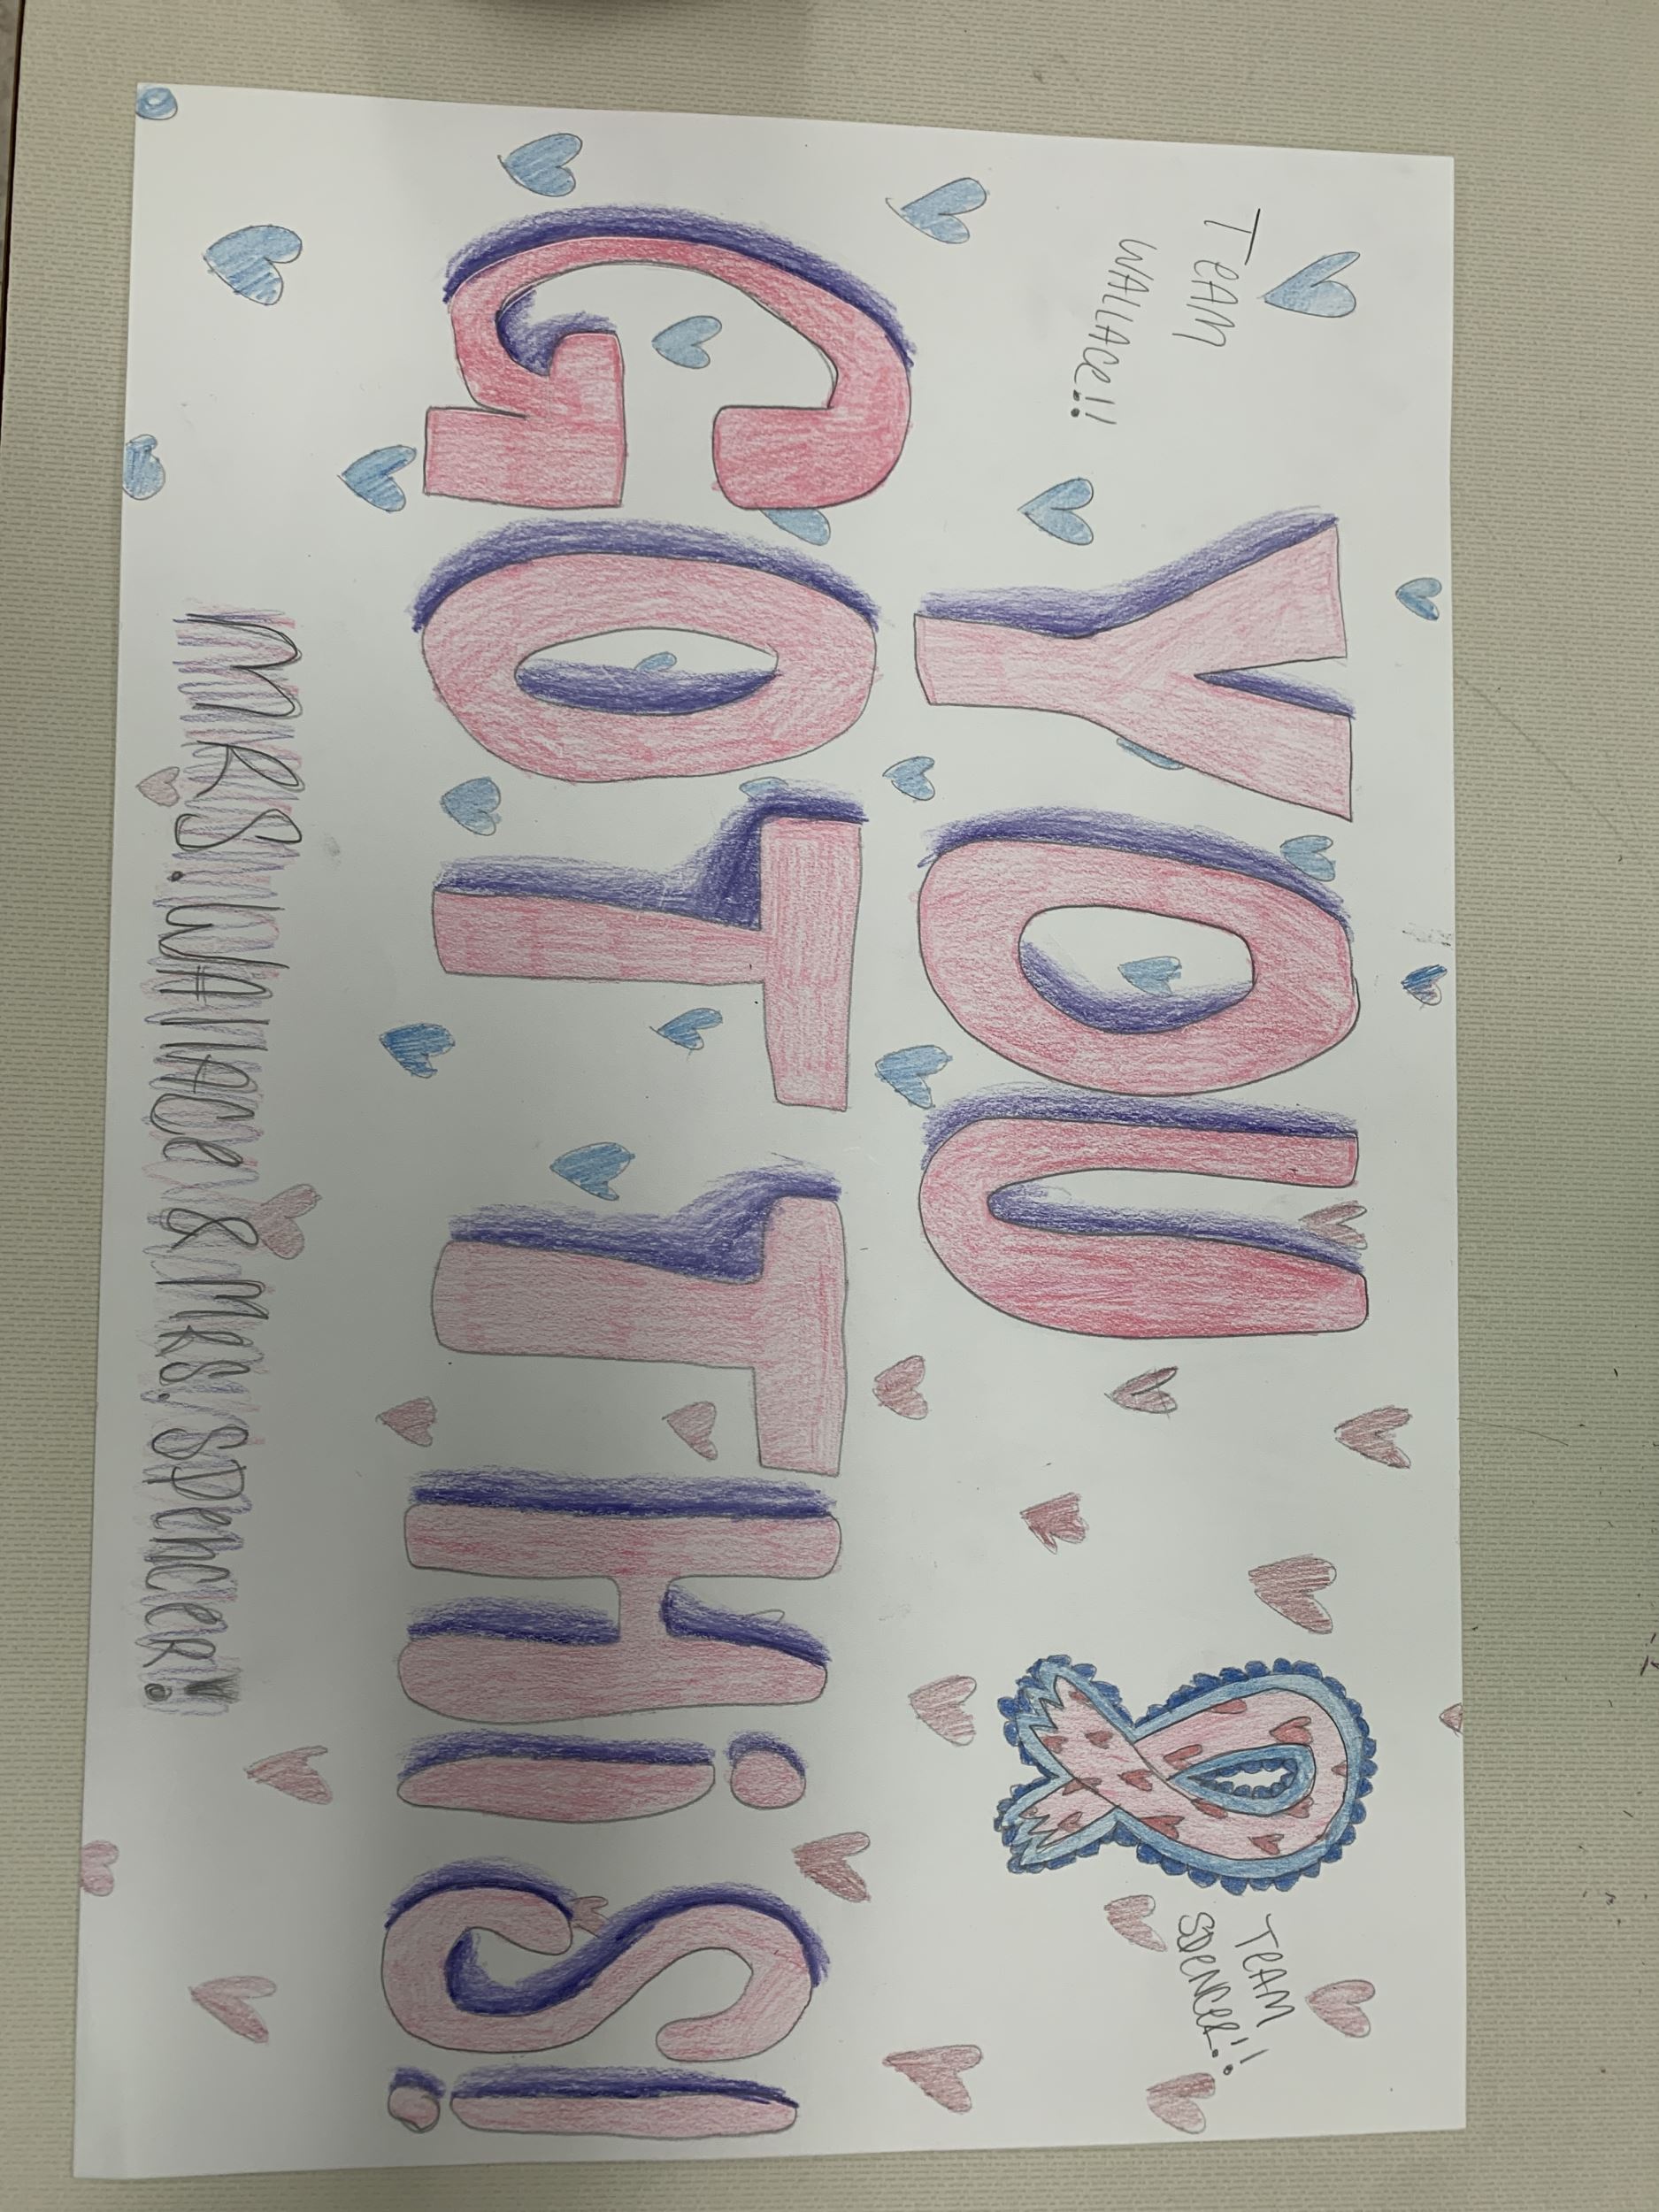 TeAM
WAllAce!!
YOU
TeAM
SpeNceR!!
GOT THiS!
MRS. WAllAce & MRS. SpenceR!!